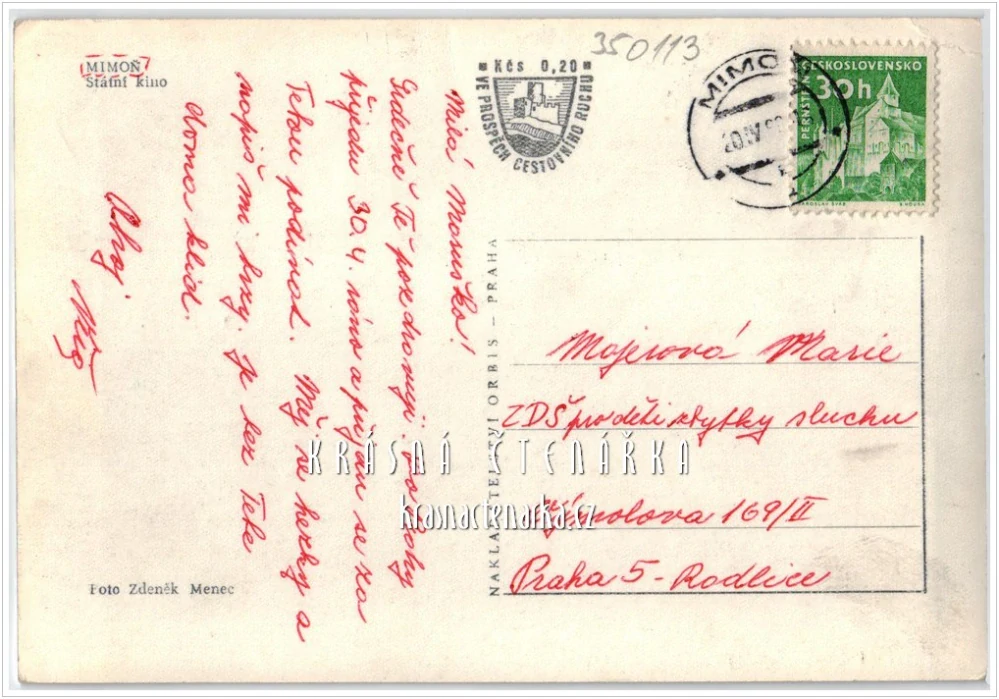 MIMOŇ
Státní kino
350113
Kčs 0,20
VE PROSPĚCH CESTOVNÍHO RUCHU
MIMOŇ
ČESKOSLOVENSKO
30h
PERNŠTEJN
JAROSLAV ŠVÁB
Milá Maruško!
Srdečně Tě pozdravuji. Do Prahy
přijedu 30.4. ráno a přijdu se za
Tebou podívat. Měj se hezky a
napiš mi brzy. Je bez Tebe
doma klid.
Ahoj.
NAKLADATELSTVÍ ORBIS - PRAHA
Majerová Marie
ZDŠ pro děti zbytky sluchu
169/II
Praha 5 - Radlice
KRÁSNÁ ČTENÁŘKA
krasnactenarka.cz
Foto Zdeněk Menec